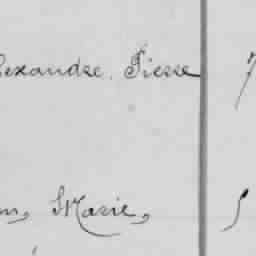 exandre. Pierre 7
n, Marie,